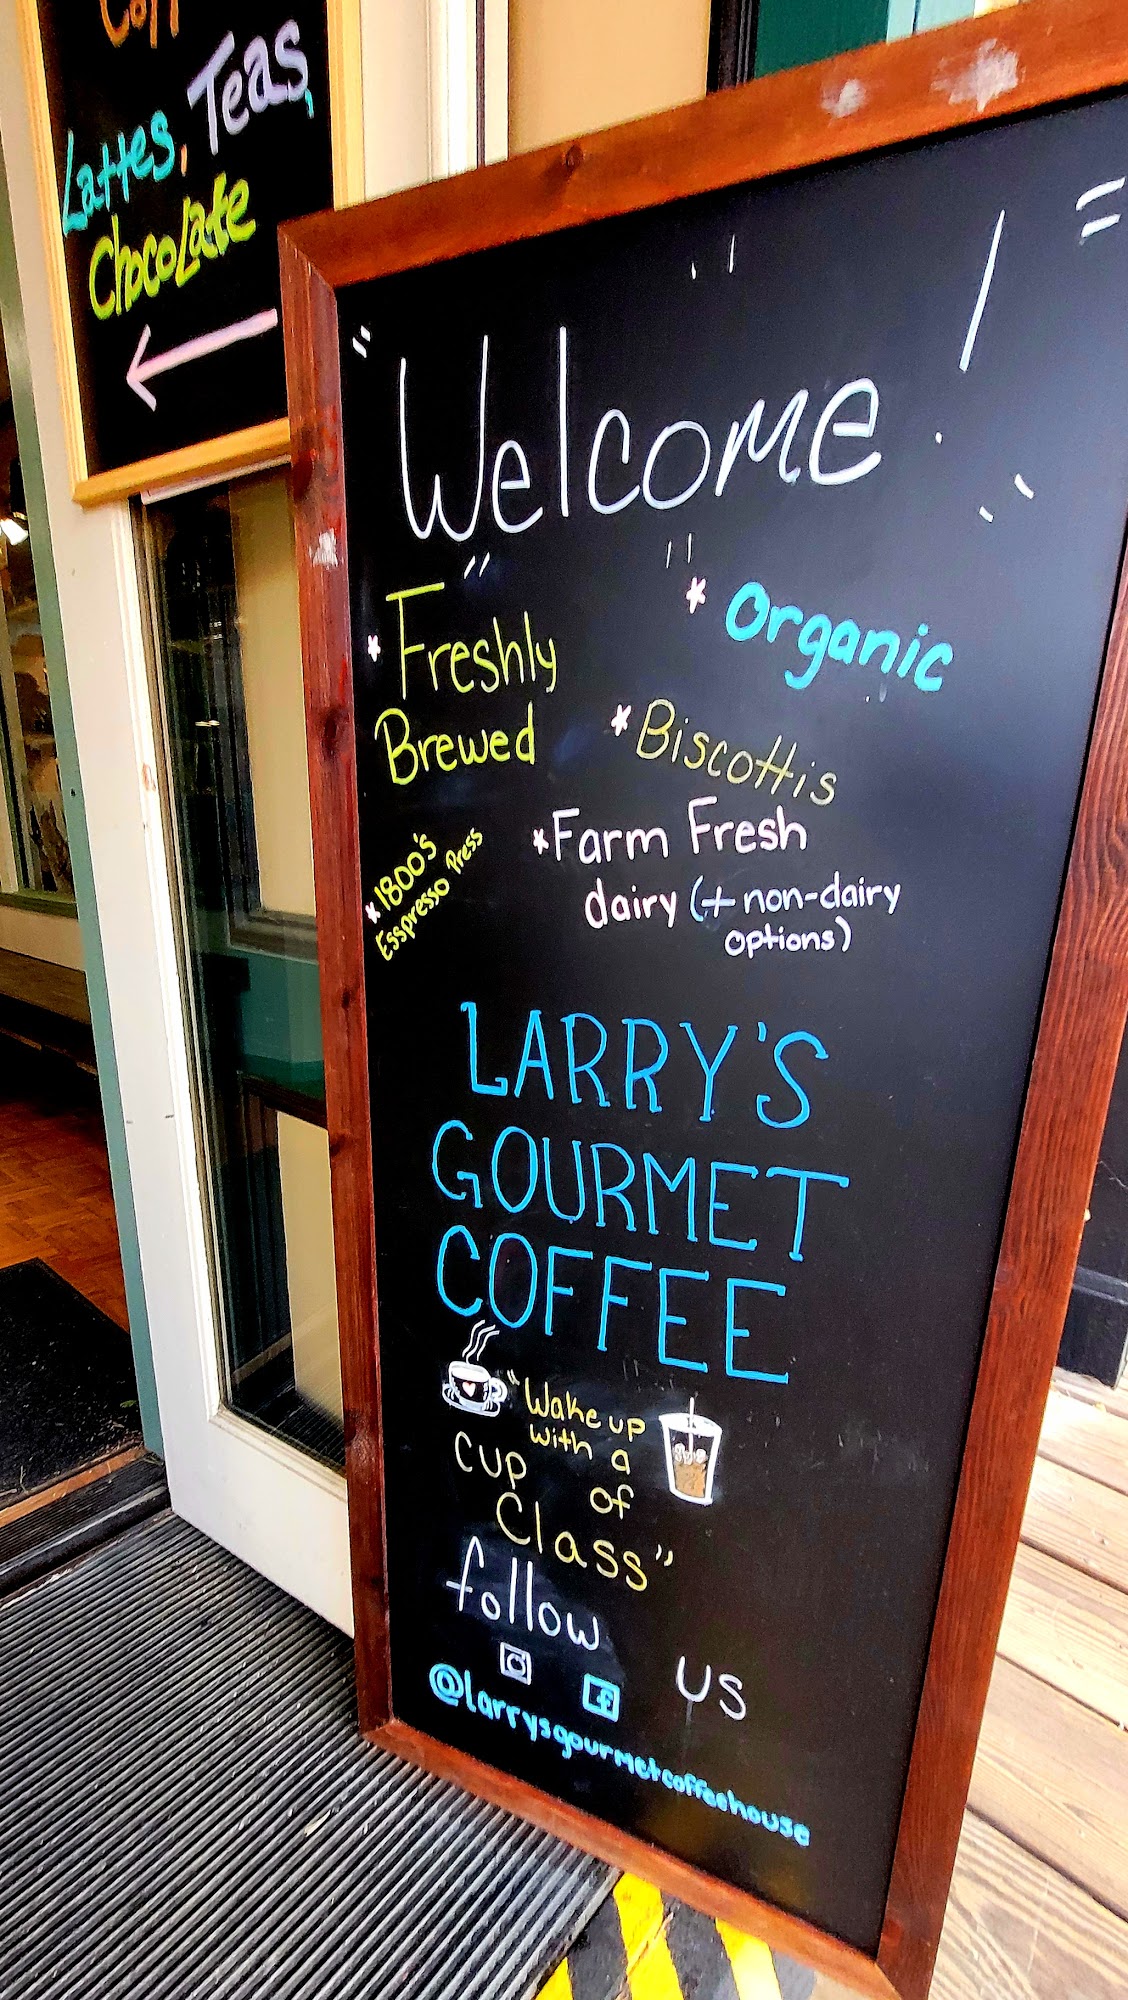 Teas,
Lattes,
Chocolate
Welcome!
* Freshly
Brewed
* Organic
* Biscottis
* 1800's
Esspresso Press
* Farm Fresh
dairy (+ non-dairy
options)
LARRY'S
GOURMET
COFFEE
"Wake up
with a
cup of
Class"
follow us
@larrysgourmetcoffeehouse